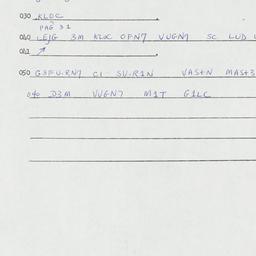 030 KLOC
PAG 31
040 LEJG 3M KLOC OFN7 VUGN7 SC LUD
041
050 G3FU.RN7 C1 SU.R1N VASEN MAS+3
040 D3M VUGN7 M1T G1LC